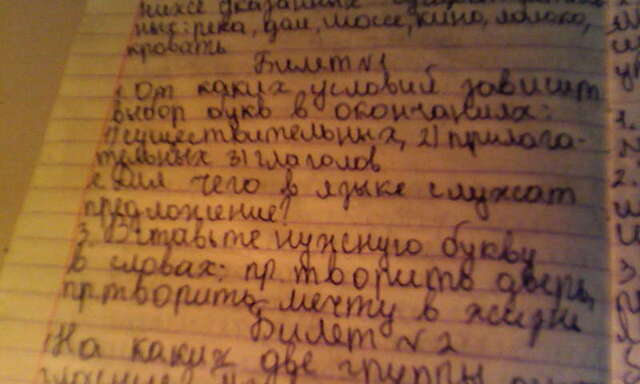 ных: река, дом, шоссе, кино, яблоко,
кровать
Билет №1
1. От каких условий зависит
выбор букв в окончаниях:
1) существительных, 2) прилага-
тельных 3) глаголов
2. Для чего в языке служат
предложение?
3. Вставьте нужную букву
в словах: пр.творить дверь,
пр.творить мечту в жизни
Билет №2
На каких две группы